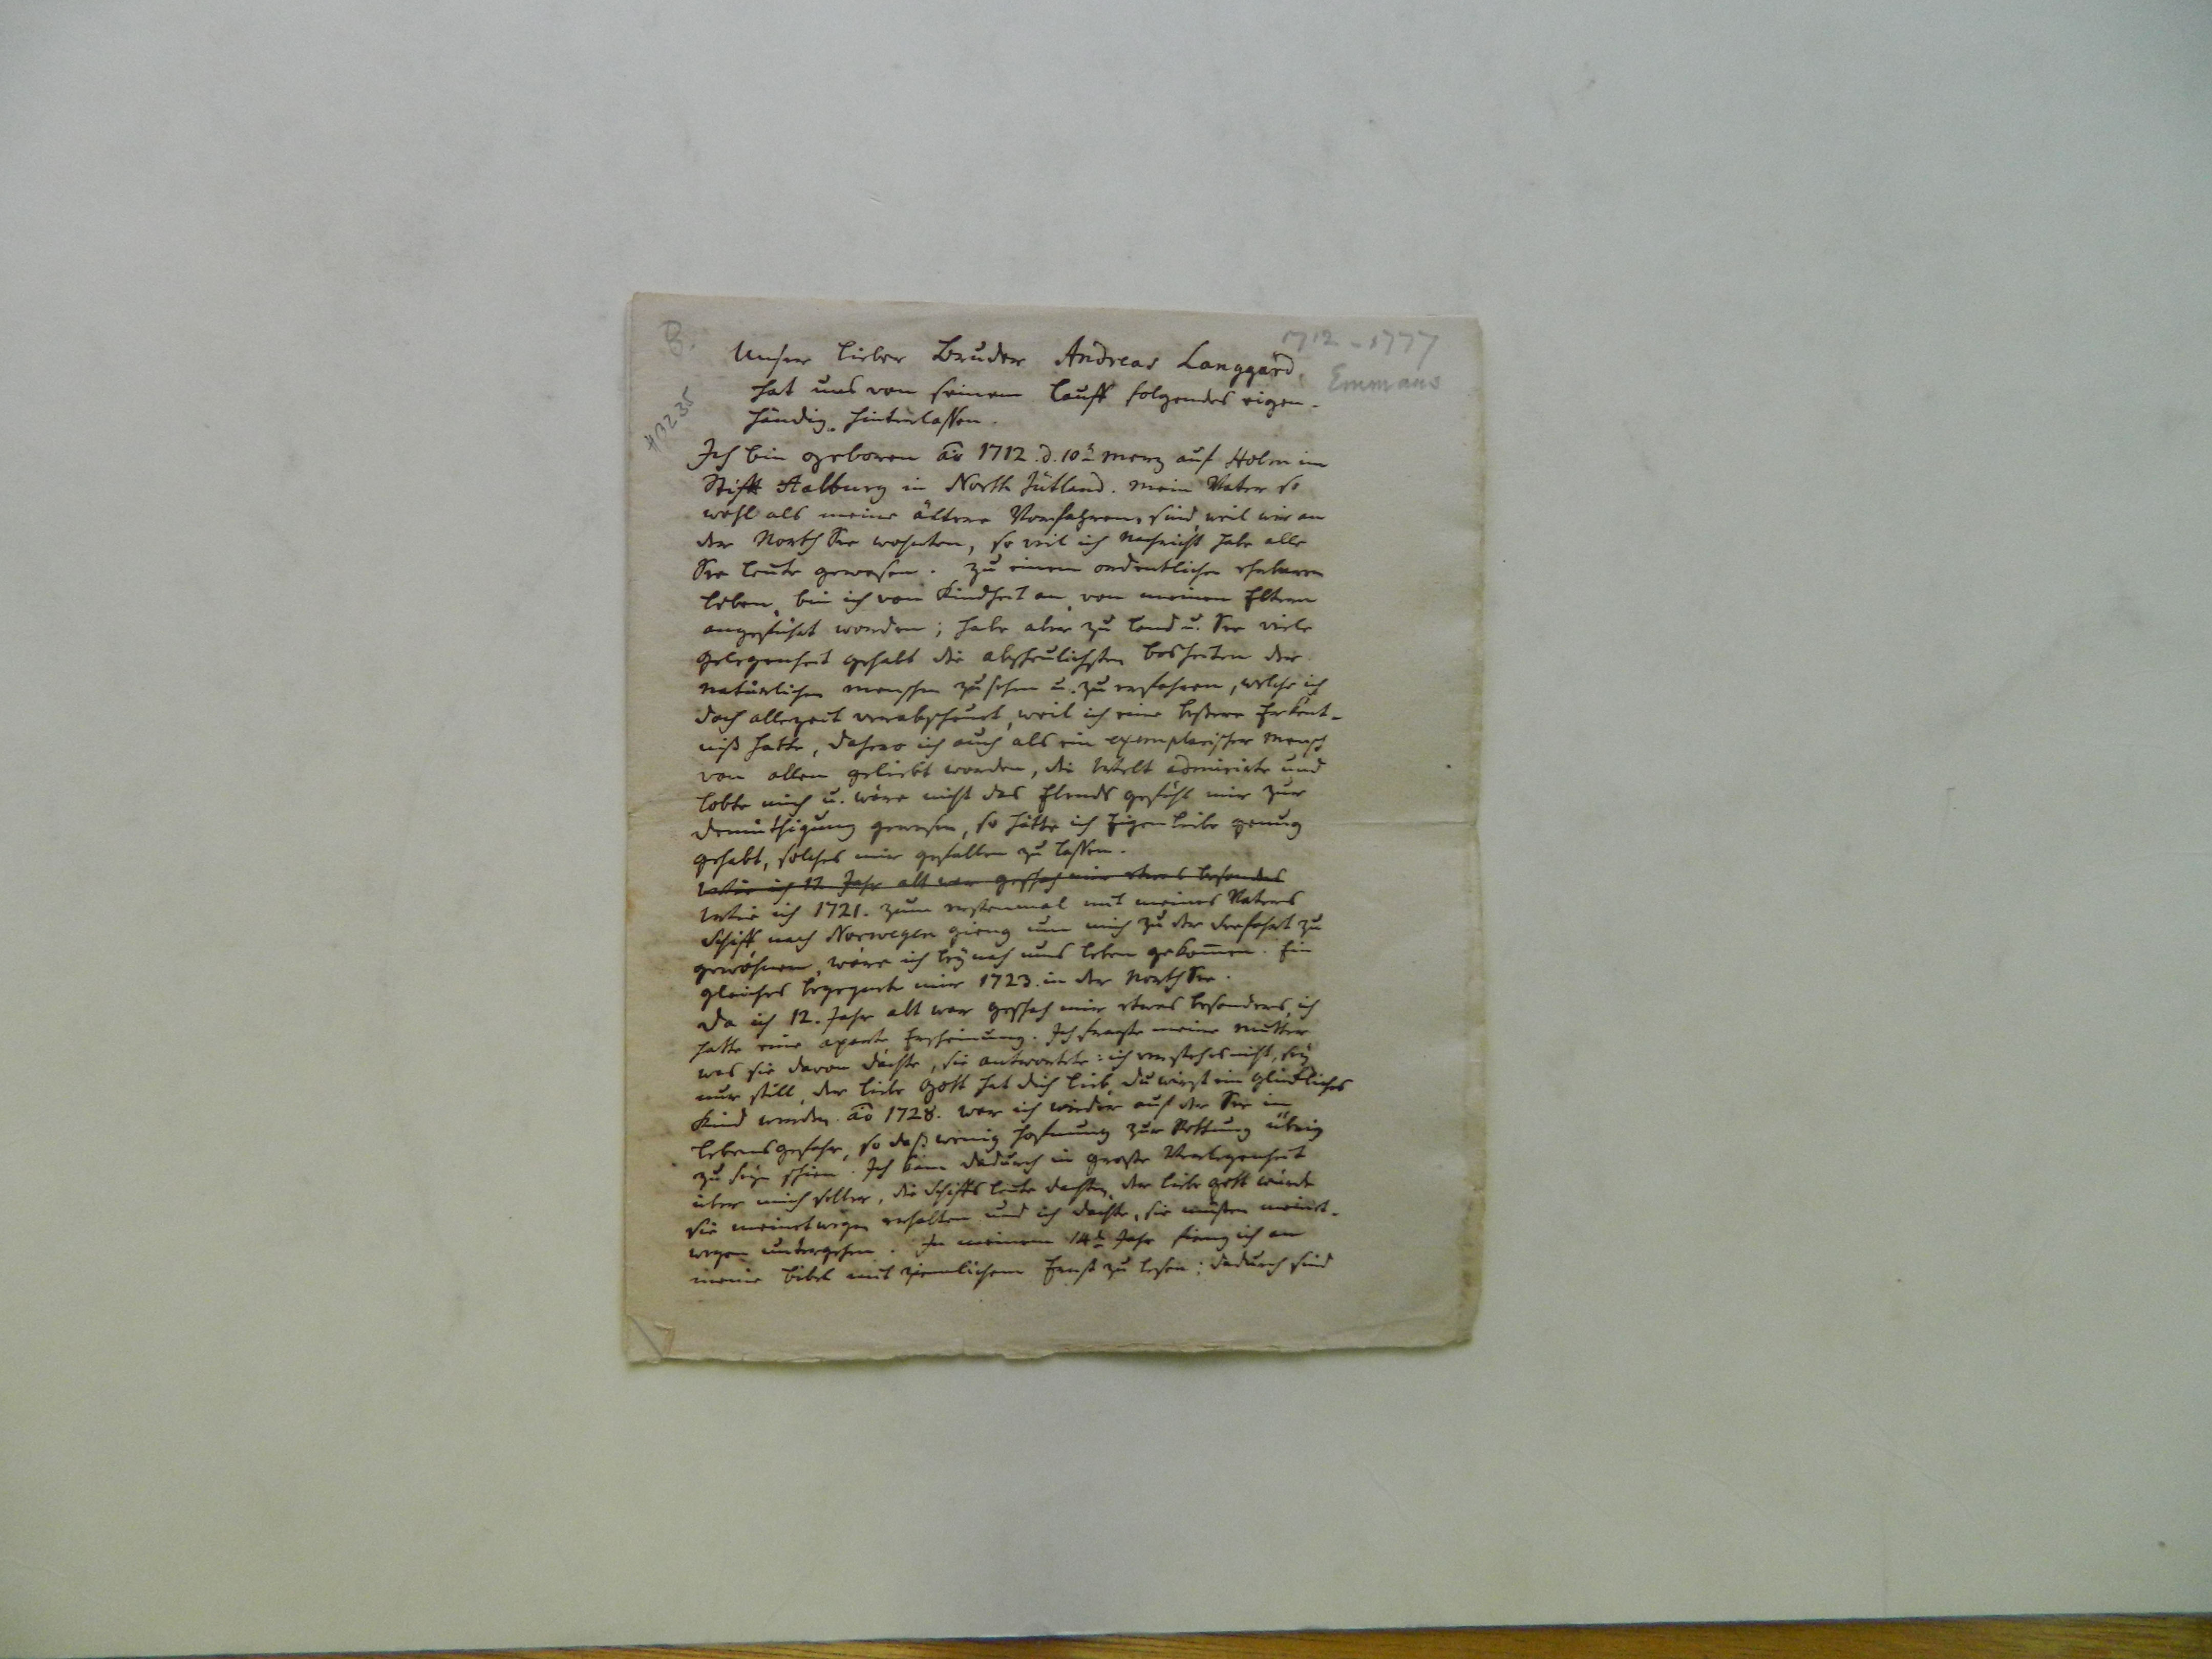 B.
1712 - 1777
Emmaus
#3235
Unser lieber Bruder Andreas Langgärd,
hat uns von seinem Lauff folgendes eigen-
händig hinterlassen.
Ich bin geboren ao 1712. d. 10t Merz auf Holm im
Stifft Aalburg in North Jütland. Mein Vater so
wohl als meine ältere Vorfahren, sind, weil wir an
der North See wohnten, so viel ich Nachricht habe alle
See Leute gewesen. Zu einem ordentlichen ehrbaren
Leben, bin ich von Kindheit an, von meinen Eltern
angeführt worden; habe aber zu Land u. See viele
Gelegenheit gehabt die abscheulichsten Bosheiten der
natürlichen Menschen zu sehen u. zu erfahren, welche ich
doch allezeit verabscheut, weil ich eine bessere Erkent-
niß hatte, dahero ich auch als ein exemplarischer Mensch
von allen geliebt worden, die Welt admirirte und
lobte mich u. wäre nicht das Elends gefühl mir zur
Demüthigung gewesen, so hätte ich Eigenliebe genug
gehabt, solches mir gefallen zu lassen.
Wie ich 12 Jahr alt war geschah mir etwas besondes
Wie ich 1721. zum erstenmal mit meines Vaters
Schiff nach Norwegen gieng um mich zu der Seefahrt zu
gewöhnen, wäre ich beynah ums Leben gekommen. Ein
gleiches begegnete mir 1723. in der North See.
Da ich 12. Jahr alt war geschah mir etwas besonders, ich
hatte eine aparte Erscheinung. Ich fragte meine Mutter
was sie davon dächte, sie antwortete: ich verstehs nicht, sey
nur still, der liebe Gott hat dich lieb, du wirst ein glückliches
Kind werden. ao 1728. war ich wieder auf der See in
Lebensgefahr, so daß wenig Hofnung zur Rettung übrig
zu seyn schien. Ich kam dadurch in grosse Verlegenheit
über mich selber, die Schiffs Leute dachten, der liebe Gott würde
sie meinetwegen erhalten und ich dachte, sie müsten meinet-
wegen untergehen. In meinem 14t Jahr fieng ich an
meine Bibel mit ziemlichem Ernst zu lesen; dadurch sind